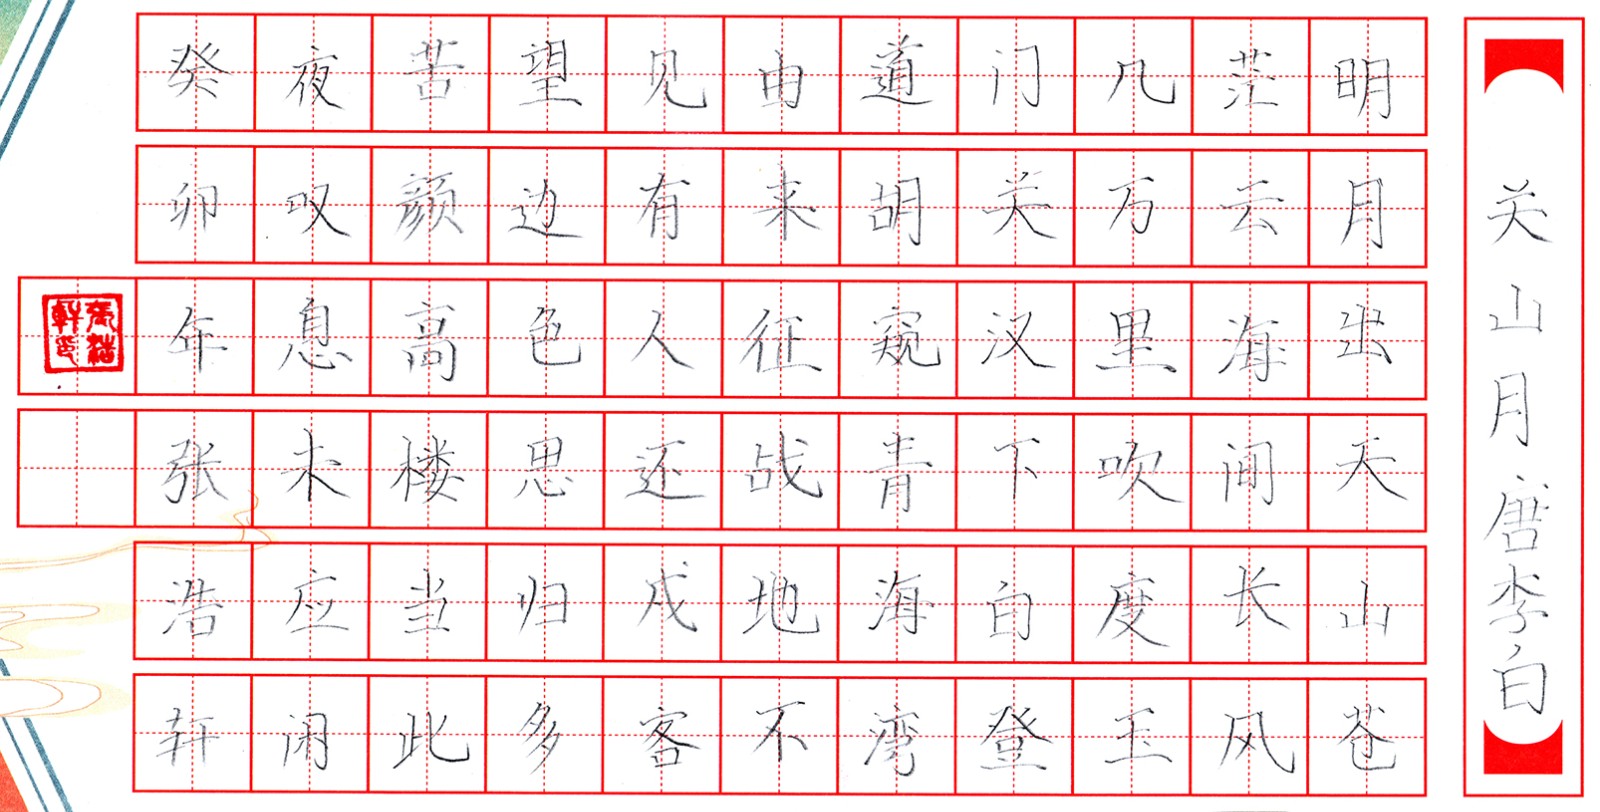 关山月唐李白
明月出天山苍
茫云海间长风
几万里吹度玉
门关汉下白登
道胡窥青海湾
由来征战地不
见有人还戍客
望边色思归多
苦颜高楼当此
夜叹息未应闲
癸卯年张浩轩
張浩軒印